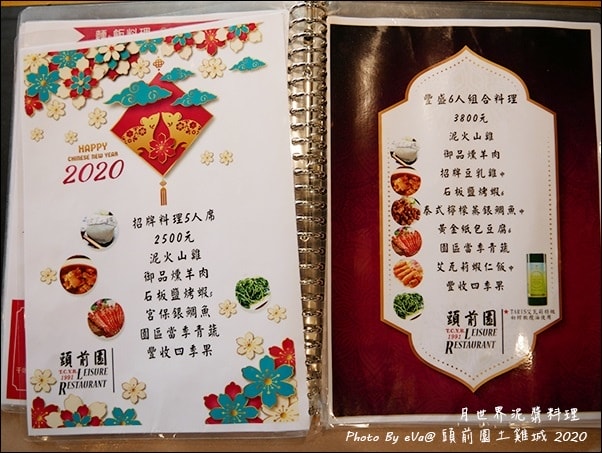 麵、飯料理
HAPPY
CHINESE NEW YEAR
2020
招牌料理5人席
2500元
泥火山雞
御品燻羊肉
石板鹽烤蝦s
宮保銀鯛魚
園區當季青蔬
豐收四季果
頭前園
T.C.Y.R. LEISURE
1991 RESTAURANT
豐盛6人組合料理
3800元
泥火山雞
御品燻羊肉
招牌豆乳雞中
石板鹽烤蝦s
泰式檸檬蒸銀鯛魚中
黃金紙包豆腐s
園區當季青蔬
艾瓦莉蝦仁飯中
豐收四季果
頭前園
T.C.Y.R. LEISURE
1991 RESTAURANT
月世界泥漿料理
Photo By eVa@ 頭前園土雞城 2020